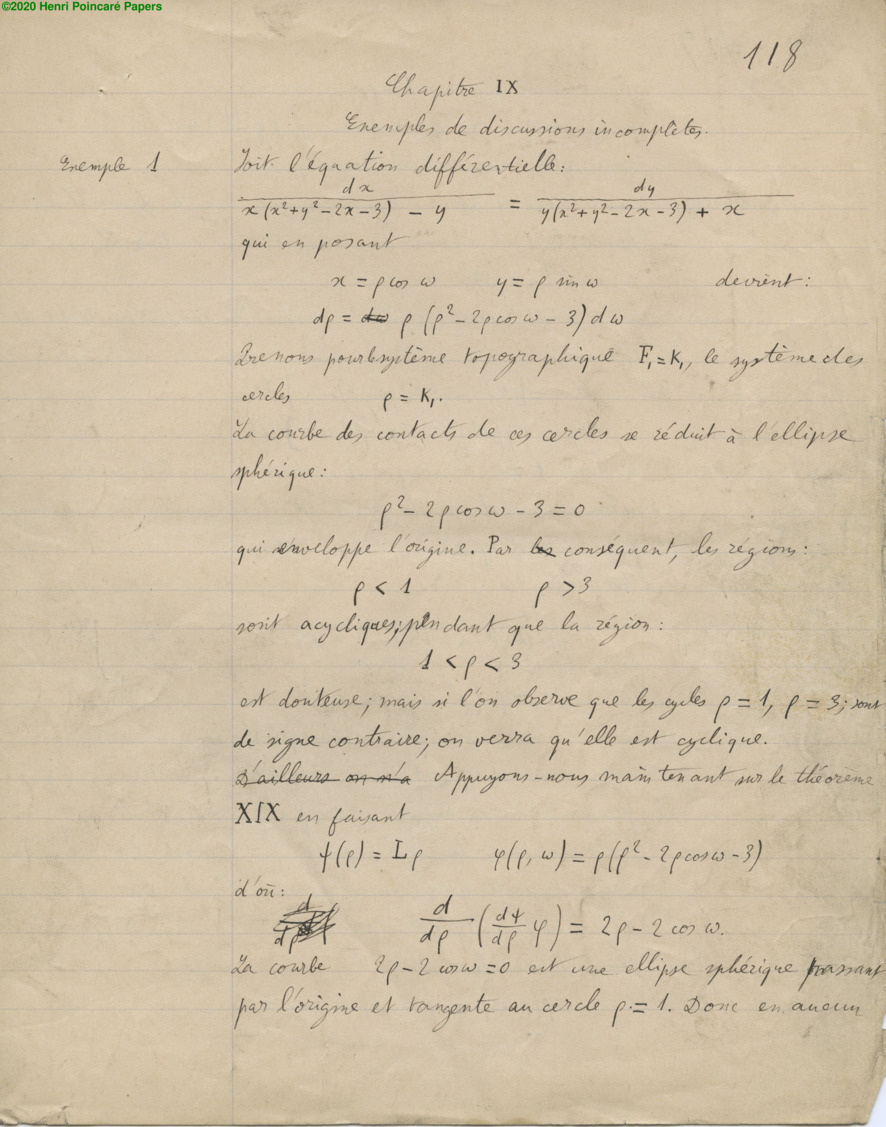 ©2020 Henri Poincaré Papers
118
Chapitre IX
Exemples de discussions incomplètes.
Exemple 1 Soit l'équation différentielle:
dx / x(x²+y²-2x-3) - y = dy / y(x²+y²-2x-3) + x
qui en posant
x = ρ cos ω y = ρ sin ω devient:
dρ = dω ρ (ρ² - 2ρ cos ω - 3) dω
Prenons pour le système topographique F₁ = K₁, le système des
cercles ρ = K₁.
La courbe des contacts de ces cercles se réduit à l'ellipse
sphérique:
ρ² - 2ρ cos ω - 3 = 0
qui enveloppe l'origine. Par les conséquent, les régions:
ρ < 1 ρ > 3
sont acycliques; pendant que la région:
1 < ρ < 3
est douteuse; mais si l'on observe que les cycles ρ = 1, ρ = 3; sont
de signe contraire; on verra qu'elle est cyclique.
D'ailleurs on n'a Appuyons-nous maintenant sur le théorème
XIX en faisant
ψ(ρ) = Lρ φ(ρ, ω) = ρ(ρ² - 2ρ cos ω - 3)
d'où:
d/dρ d/dρ (dψ/dρ φ) = 2ρ - 2 cos ω.
La courbe 2ρ - 2 cos ω = 0 est une ellipse sphérique passant
par l'origine et tangente au cercle ρ = 1. Donc en aucun